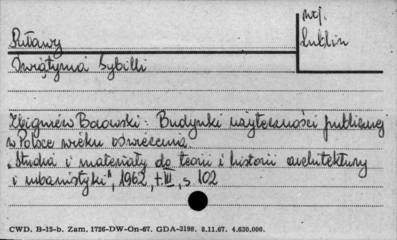 woj.
Lublin
Puławy
Świątynia Sybilli
Zbigniew : Budynki użyteczności publicznej
w Polsce wieku oświecenia.
„Studia i materiały do teorii i historii architektury
i urbanistyki", 1962, t. III, s. 102
CWD. B-15-b. Zam. 1726-DW-On-67. GDA-3198. 8.11.67. 4.630.000.